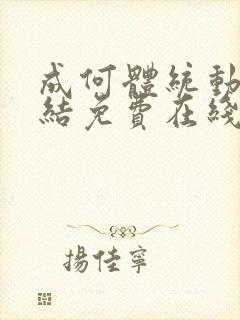 成何體統動
結免費在綫
揚佳寧